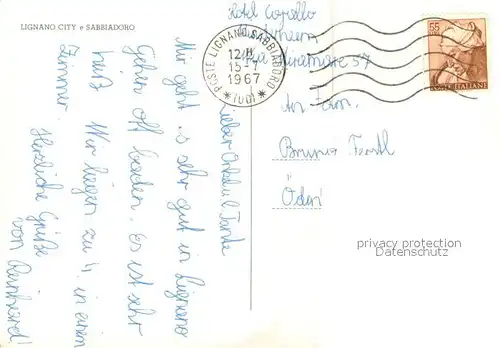 LIGNANO CITY e SABBIADORO
Hotel Capello
57
POSTE LIGNANO SABBIADORO
12/H
15-7
1967
(UD)
55
POSTE ITALIANE
An Fam.
Bruno
Lieber Onkel u. Tante
Mir geht's sehr gut in Lignano
Gehen oft baden. Es ist sehr
heiß. Wir liegen zu 4 in einem
Zimmer.
Herzliche Grüße
von Reinhard!
privacy protection
Datenschutz